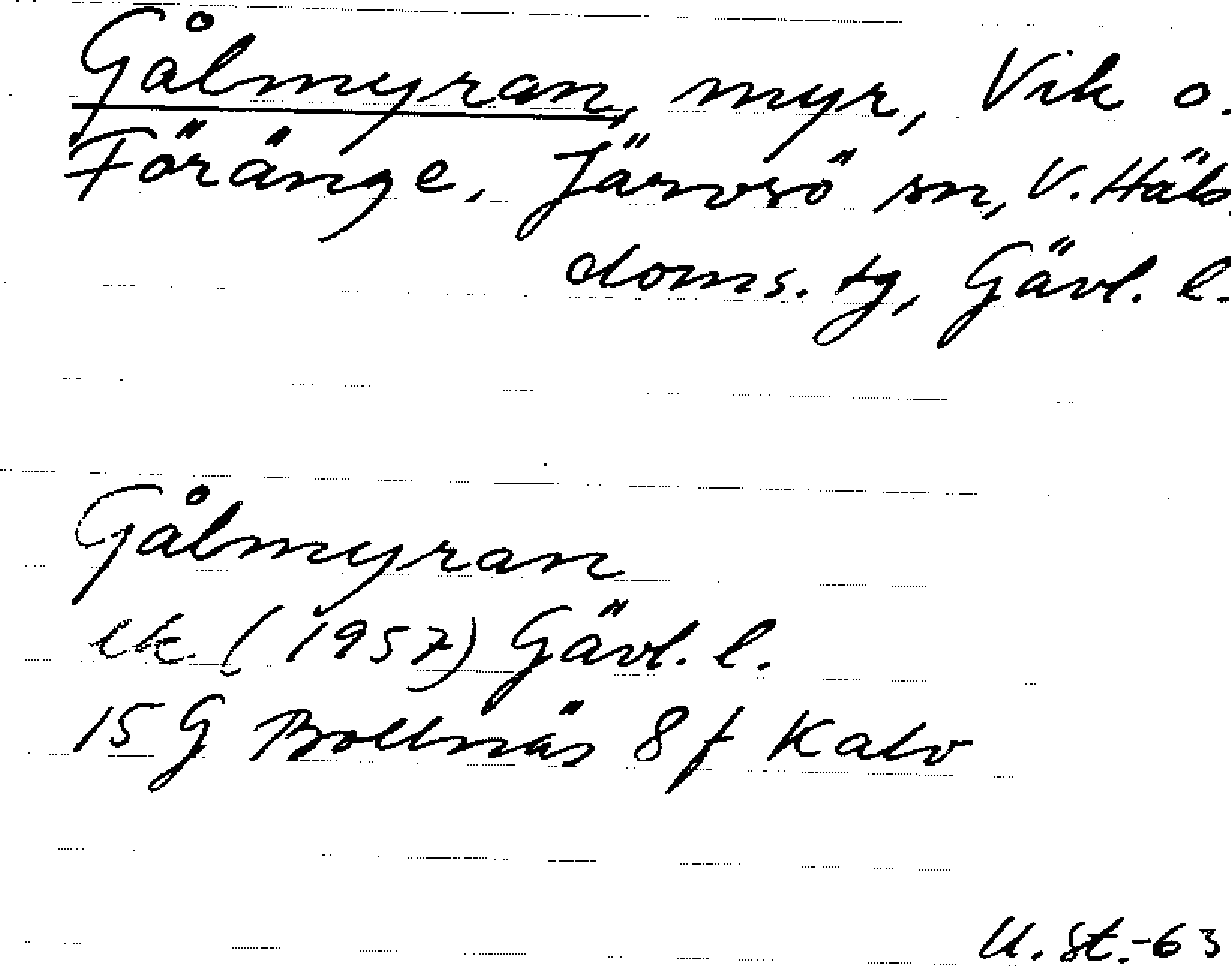 Gålmyran, myr, Vik o.
Föränge, Järvsö sn, V. Häls.
doms. tg, Gävl. l.
Gålmyran
ek (1957) Gävl. l.
15 G Bollnäs 8 f Kalv
U. St.-63